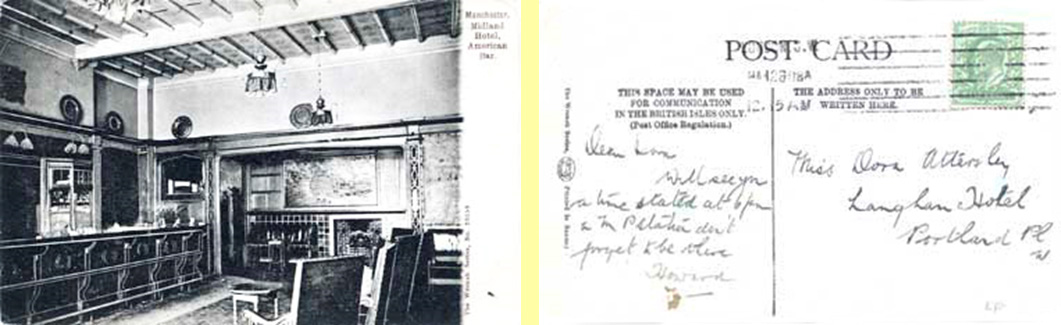 Manchester.
Midland
Hotel,
American
Bar.
POST CARD
THIS SPACE MAY BE USED
FOR COMMUNICATION
IN THE BRITISH ISLES ONLY.
(Post Office Regulation.)
THE ADDRESS ONLY TO BE
WRITTEN HERE.
12.15 AM
Dear Dora
Will see you
a time stated at 6pm
don't
forget to be there
Howard
Miss Dora Attersley
Langham Hotel
Portland Pl
W